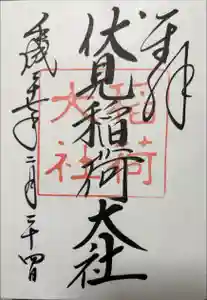 奉拝
伏見稲荷大社
稲荷
大社
平成二十七年二月二十四日